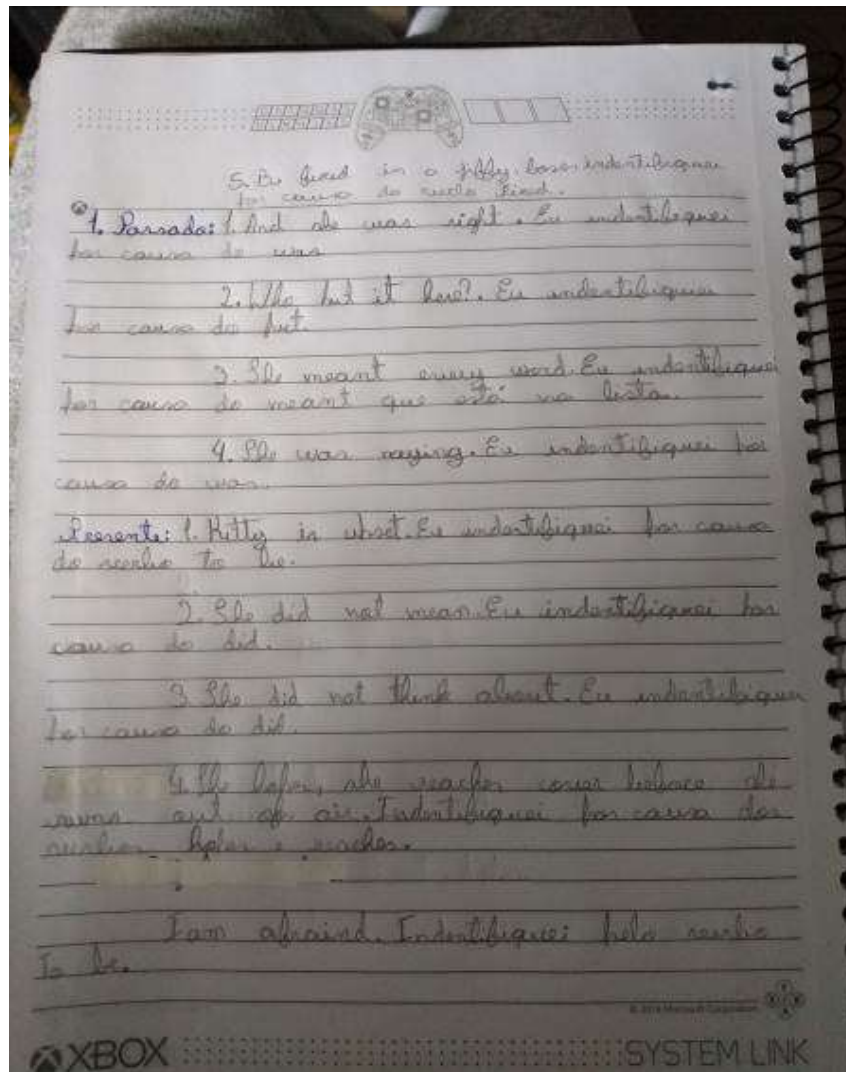 5. Be fixed in a jiffy. indentifiquei
por causa do verbo fixed.
1. Passado: 1. And she was right. Eu indentifiquei
por causa do was
2. Who put it here?. Eu indentifiquei
por causa do put.
3. She meant every word. Eu indentifiquei
por causa do meant que está na lista.
4. She was saying. Eu indentifiquei por
causa do was.
Presente: 1. Kitty is upset. Eu indentifiquei por causa
do verbo to be.
2. She did not mean. Eu indentifiquei por
causa do did.
3 She did not think about. Eu indentifiquei
por causa do did.
4. She hopes, she reaches cover before she
runs out of air. Indentifiquei por causa dos
verbos hopes e reaches.
I am afraind. Indentifiquei pelo verbo
To be.
© 2019 Microsoft Corporation
XBOX SYSTEM LINK